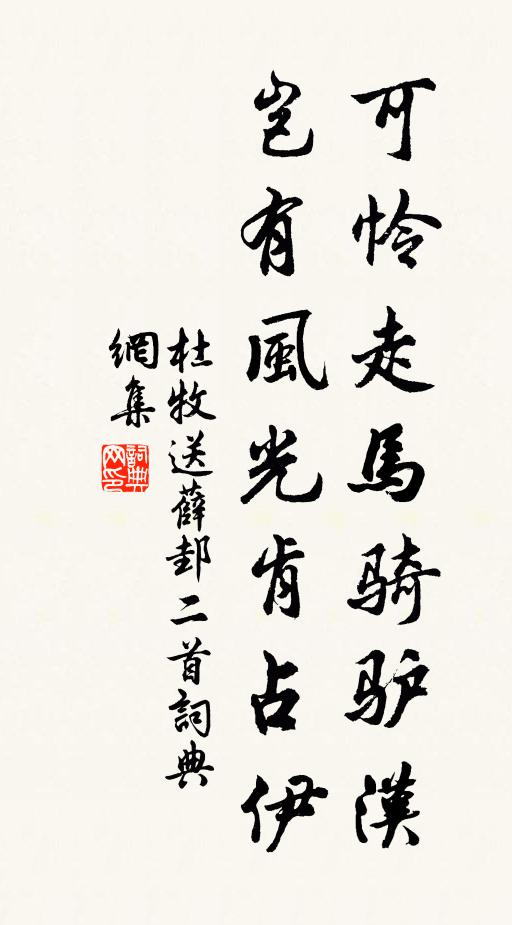 可怜走馬骑驴漢
豈有風光肯占伊
杜牧送薛邽二首詞典
網集
詞典网印